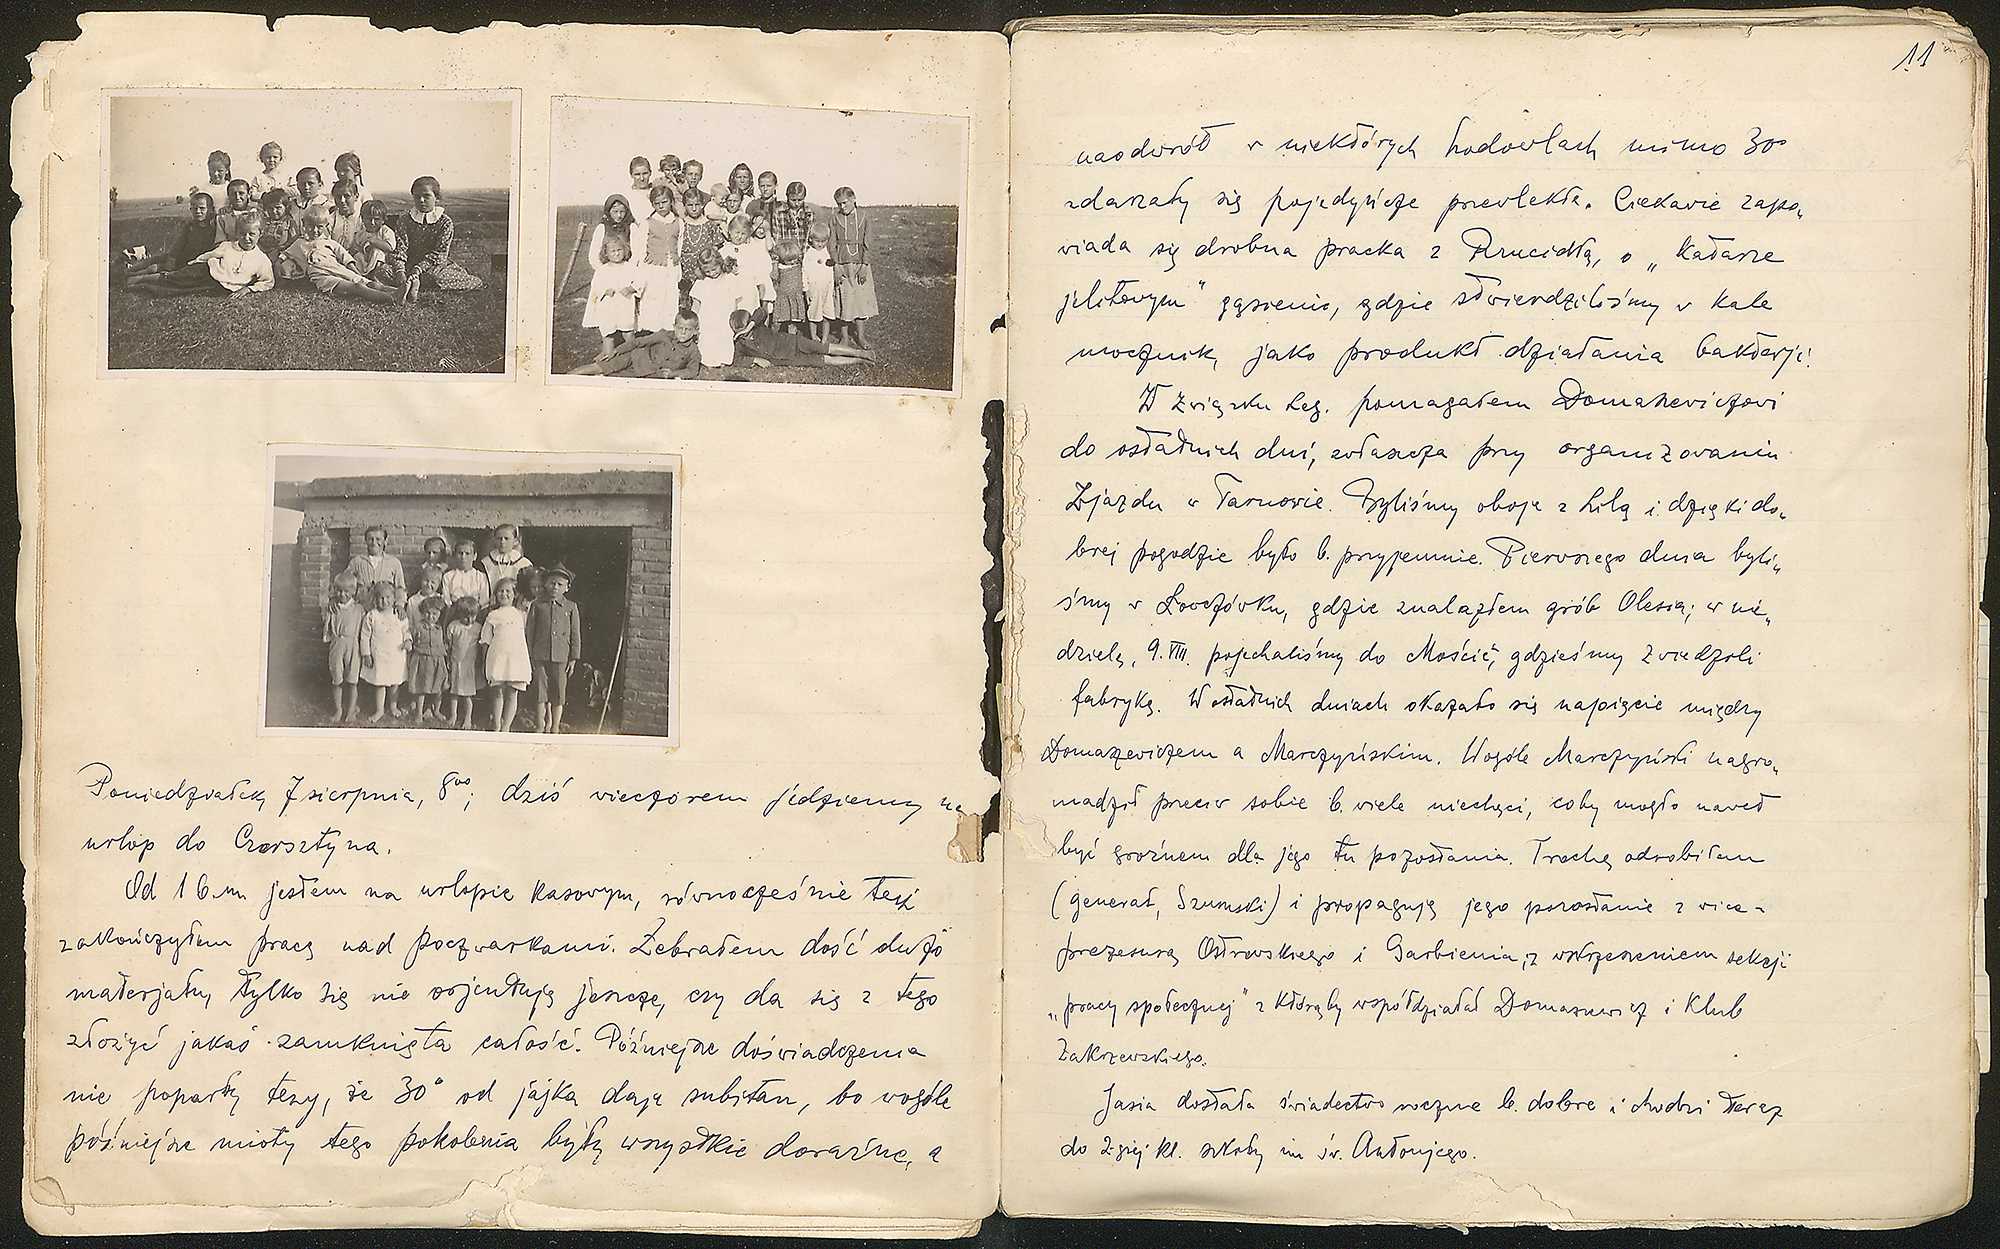 Poniedziałek, 7 sierpnia, 8⁰⁰; dziś wieczorem jedziemy na
urlop do Czorsztyna.
Od 1 b.m. jestem na urlopie kasowym, równocześnie też
zakończyłem pracę nad poczwarkami. Zebrałem dość dużo
materjału, tylko się nie orjentuję jeszcze, czy da się z tego
złożyć jakaś zamknięta całość. Późniejsze doświadczenia
nie poparły tezy, że 30° od jajka daje subitan, bo wogóle
późniejsze mioty tego pokolenia były wszystkie doraźne, a
11
naodwrót w niektórych hodowlach mimo 30°
zdarzały się pojedyńcze przewlekłe. Ciekawie zapo„
wiada się drobna pracka z , o „katarze
jelitowym" gąsienic, gdzie stwierdziliśmy w kale
mocznik, jako produkt działania bakterji!
W Związku Leg. pomagałem Domaszewiczowi
do ostatnich dni, zwłaszcza przy organizowaniu
Zjazdu w Tarnowie. Byliśmy oboje z Lilą i dzięki do„
brej pogodzie było b. przyjemnie. Pierwszego dnia byli„
śmy w Łowczówku, gdzie znalazłem grób Olesia; w nie„
dzielę, 9.VIII. pojechaliśmy do Mościć, gdzieśmy zwiedzali
fabrykę. W ostatnich dniach okazało się napięcie między
Domaszewiczem a Marczyńskim. Wogóle Marczyński nagro„
madził przeciw sobie b. wiele niechęci, coby mogło nawet
być groźnem dla jego tu pozostania. Trochę odrobiłem
(generał, Szumski) i propaguję jego pozostanie z wice-
prezesurą Ostrowskiego i Garbienia, z wskrzeszeniem sekcji
„pracy społecznej" z którąby współdziałał Domaszewicz i Klub
Zakrzewskiego.
Jasia dostała świadectwo roczne b. dobre i chodzi teraz
do 2giej kl. szkoły im św. Antoniego.